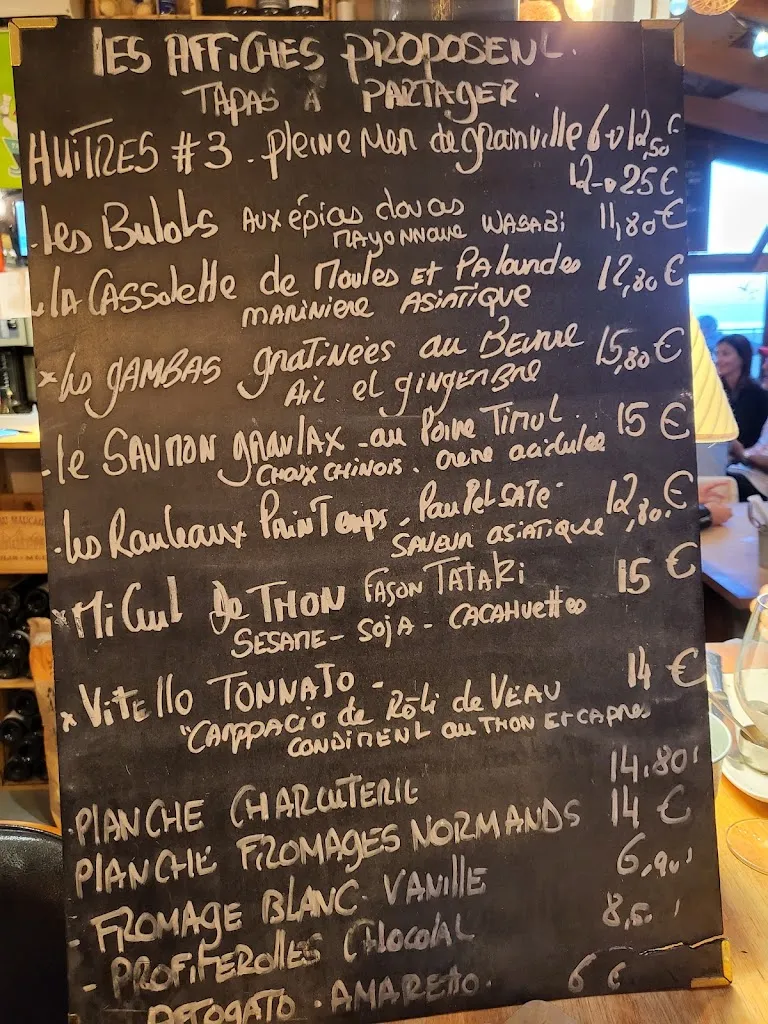 LES AFFICHES PROPOSENT.
TAPAS A PARTAGER.
HUITRES #3. pleine Mer de granville 6→12,50€
12→25€
- Les Bulots AUX épices douces 11,80€
MAYONNAISE WASABI
- LA Cassolette de Moules ET PALourdes 12,80€
MARINIERE ASIATIQUE
x Les GAMBAS gratinées au Beurre 15,80€
AIL et gingembre
- Le SAUMON gravLAX - au Poivre Timut. 15€
CHOUX CHINOIS.
. Les Rouleaux PrinTemps. Poulet SATE 12,80€
SAVEUR ASIATIQUE
x Mi Cuit De THON FAÇON TATAKI 15€
SESAME - SOJA - CACAHUETTES
x Vitello TONNATO - 14€
"CARPPACIO de Rôti de VEAU
CONDIMENT au THON ET CAPRES
. PLANCHE CHARCUTERIE 14.80'
PLANCHE FROMAGES NORMANDS 14€
- FROMAGE BLANC. VANILLE 6,90'
- PROFITEROLLES CHocolat 8,50'
AFFOGATO. AMARETTO. 6€